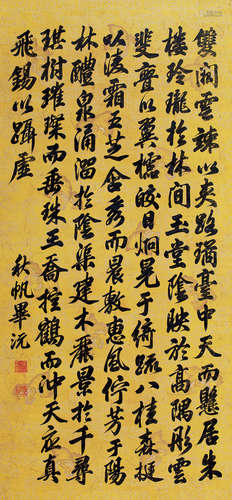 雙闕雲竦以夾路瓊臺中天而懸居朱
樓玲瓏於林間玉堂陰映於高隅彤雲
斐亹以翼櫺皎日炯晃于綺疏八桂森挺
以凌霜五芝含秀而晨敷惠風佇芳于陽
林醴泉涌溜於陰渠建木蔑景於千尋
琪樹璀璨而垂珠王喬控鶴而沖天應真
飛錫以躡虛
秋帆畢沅